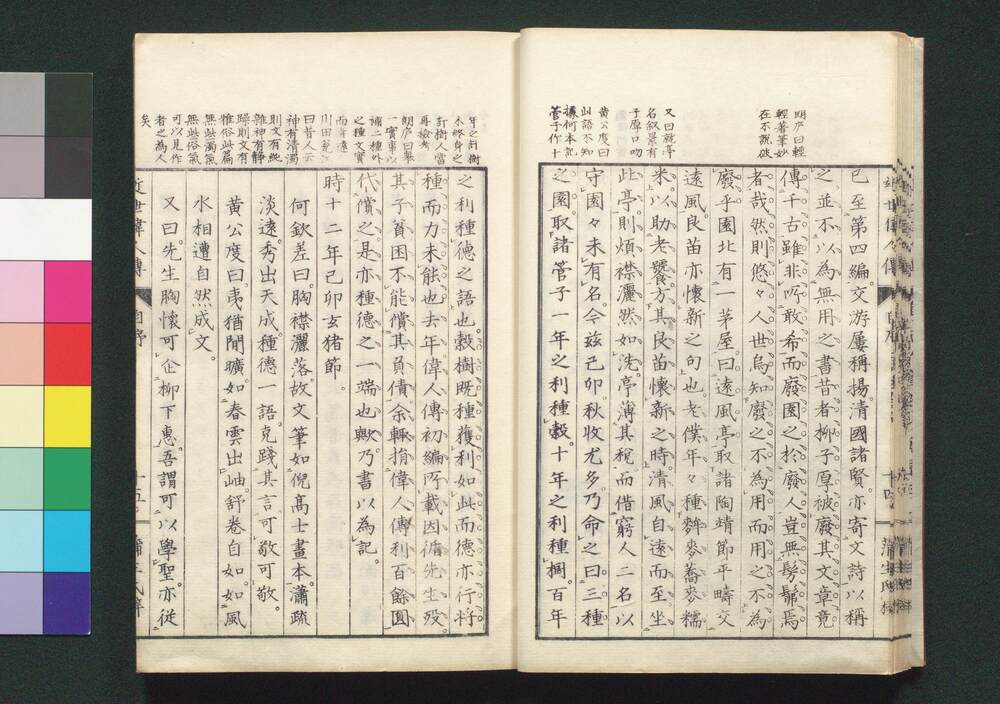 朗廬曰輕
輕著筆妙
在不說破
又曰就亭
名叙景有
子厚口吻
黃公度曰
此語不知
據何本記
管子作十
已至第四編交游屢稱揚清國諸賢亦寄文詩以稱
之並不以為無用之書昔者柳子厚被廢其文章竟
傳千古雖非所敢希而廢園之於廢人豈無髣髴焉
者哉然則悠々人世烏知廢之不為用而用之不為
廢乎園北有一茅屋曰遠風亭取諸陶靖節平疇交
遠風良苗亦懷新之句也老僕年々種麰麥蕎麥糯
米以助老饕方其良苗懷新之時清風自遠而至坐
此亭則煩襟灑然如洗亭薄其稅而借窮人二名以
守園々未有名今茲己卯秋收尤多乃命之曰三種
之園取諸管子一年之利種穀十年之利種棡百年
年之計樹
木終身之
計樹人當
再檢考
朗廬曰舉
一實事以
補二種外
之種文實
而意遠
川田甕江
曰昔人云
神有清濁
則文有純
雜神有靜
躁則文有
雅俗此篇
無此濁氣
無此俗氣
可以見作
者之為人
矣
之利種德之語也穀樹既種獲利如此而德亦行將
種而力未能也去年偉人傳初編所載因循先生歿
其子貧困不能償其負債余輒捐偉人傳利百餘圓
代償之是亦種德之一端也歟乃書以為記
時十二年己卯玄猪節
何欽差曰胸襟灑落故文筆如倪高士畫本瀟疏
淡遠秀出天成種德一語克踐其言可敬可敬
黃公度曰夷猶閒曠如春雲出岫舒卷自如如風
水相遭自然成文
又曰先生胸懷可企柳下惠吾謂可以學聖亦從
近世偉人傳